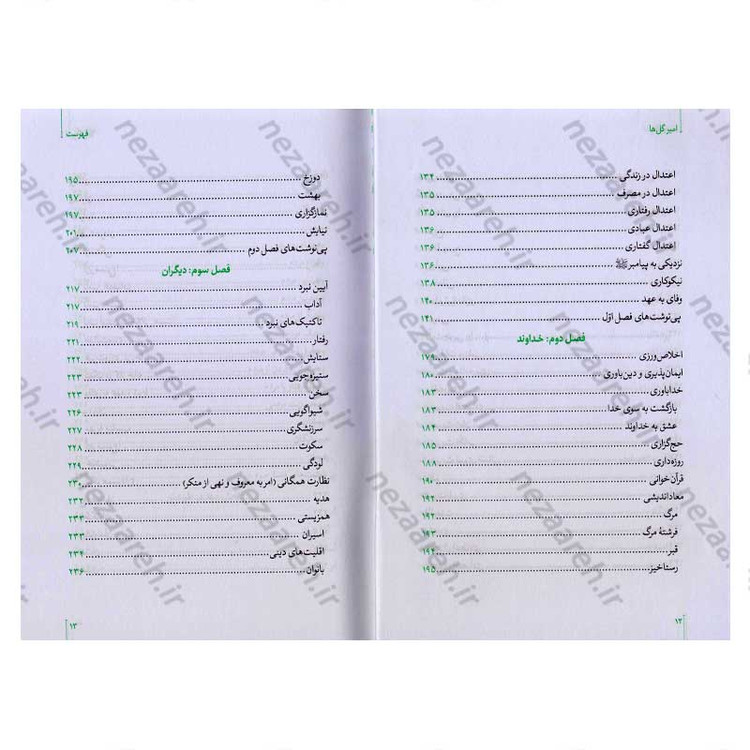 امیر گل‌ها
اعتدال در زندگی ........ ۱۳۴
اعتدال در مصرف ........ ۱۳۵
اعتدال رفتاری ........ ۱۳۵
اعتدال عبادی ........ ۱۳۶
اعتدال گفتاری ........ ۱۳۶
نزدیکی به پیامبرﷺ ........ ۱۳۶
نیکوکاری ........ ۱۳۸
وفای به عهد ........ ۱۴۰
پی‌نوشت‌های فصل اوّل ........ ۱۴۱
فصل دوم: خداوند
اخلاص‌ورزی ........ ۱۷۹
ایمان‌پذیری و دین‌باوری ........ ۱۸۰
خداباوری ........ ۱۸۳
بازگشت به سوی خدا ........ ۱۸۳
عشق به خداوند ........ ۱۸۴
حج‌گزاری ........ ۱۸۵
روزه‌داری ........ ۱۸۸
قرآن‌خوانی ........ ۱۹۰
معاداندیشی ........ ۱۹۲
مرگ ........ ۱۹۲
فرشتهٔ مرگ ........ ۱۹۳
قبر ........ ۱۹۴
رستاخیز ........ ۱۹۵
۱۲
فهرست
دوزخ ........ ۱۹۵
بهشت ........ ۱۹۷
نمازگزاری ........ ۱۹۷
نیایش ........ ۲۰۱
پی‌نوشت‌های فصل دوم ........ ۲۰۷
فصل سوم: دیگران
آیین نبرد ........ ۲۱۷
آداب ........ ۲۱۷
تاکتیک‌های نبرد ........ ۲۱۹
رفتار ........ ۲۲۱
ستایش ........ ۲۲۲
ستیزه‌جویی ........ ۲۲۳
سخن ........ ۲۲۳
شیواگویی ........ ۲۲۶
سرزنشگری ........ ۲۲۷
سکوت ........ ۲۲۸
لودگی ........ ۲۲۹
نظارت همگانی (امر به معروف و نهی از منکر) ........ ۲۳۰
هدیه ........ ۲۳۲
همزیستی ........ ۲۳۳
اسیران ........ ۲۳۳
اقلیت‌های دینی ........ ۲۳۴
بانوان ........ ۲۳۶
۱۳
nezaareh.ir
nezaareh.ir
nezaareh.ir
nezaareh.ir
nezaareh.ir
nezaareh.ir
nezaareh.ir